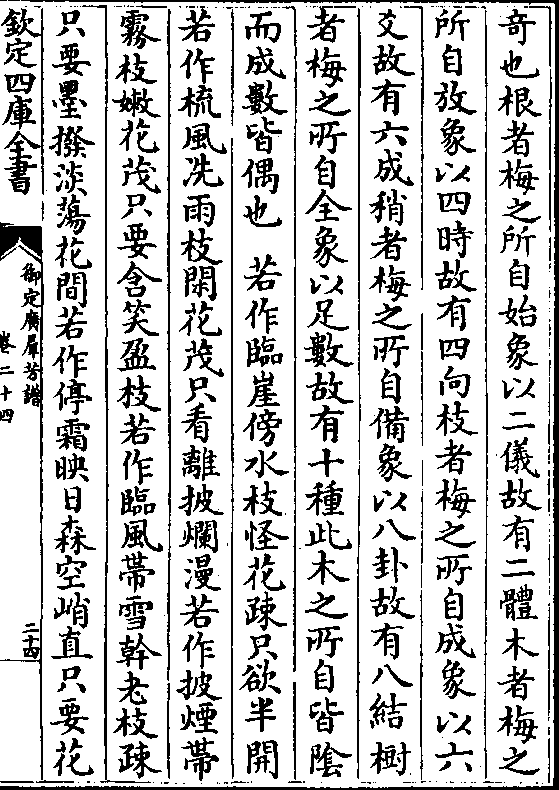 奇也根者梅之所自始象以二儀故有二體木者梅之
所自放象以四時故有四向枝者梅之所自成象以六
爻故有六成稍者梅之所自備象以八卦故有八結樹
者梅之所自全象以足數故有十種此木之所自皆隂
而成數皆偶也　若作臨崖傍水枝怪花疎只欲半開
若作梳風洗雨枝閑花茂只看離披爛漫若作披煙帶
霧枝嫩花茂只要含笑盈枝若作臨風帶雪幹老枝疎
只要墨撥淡蕩花間若作停霜映日森空峭直只要花
欽定四庫全書
御定廣羣芳譜
卷二十四
二十四